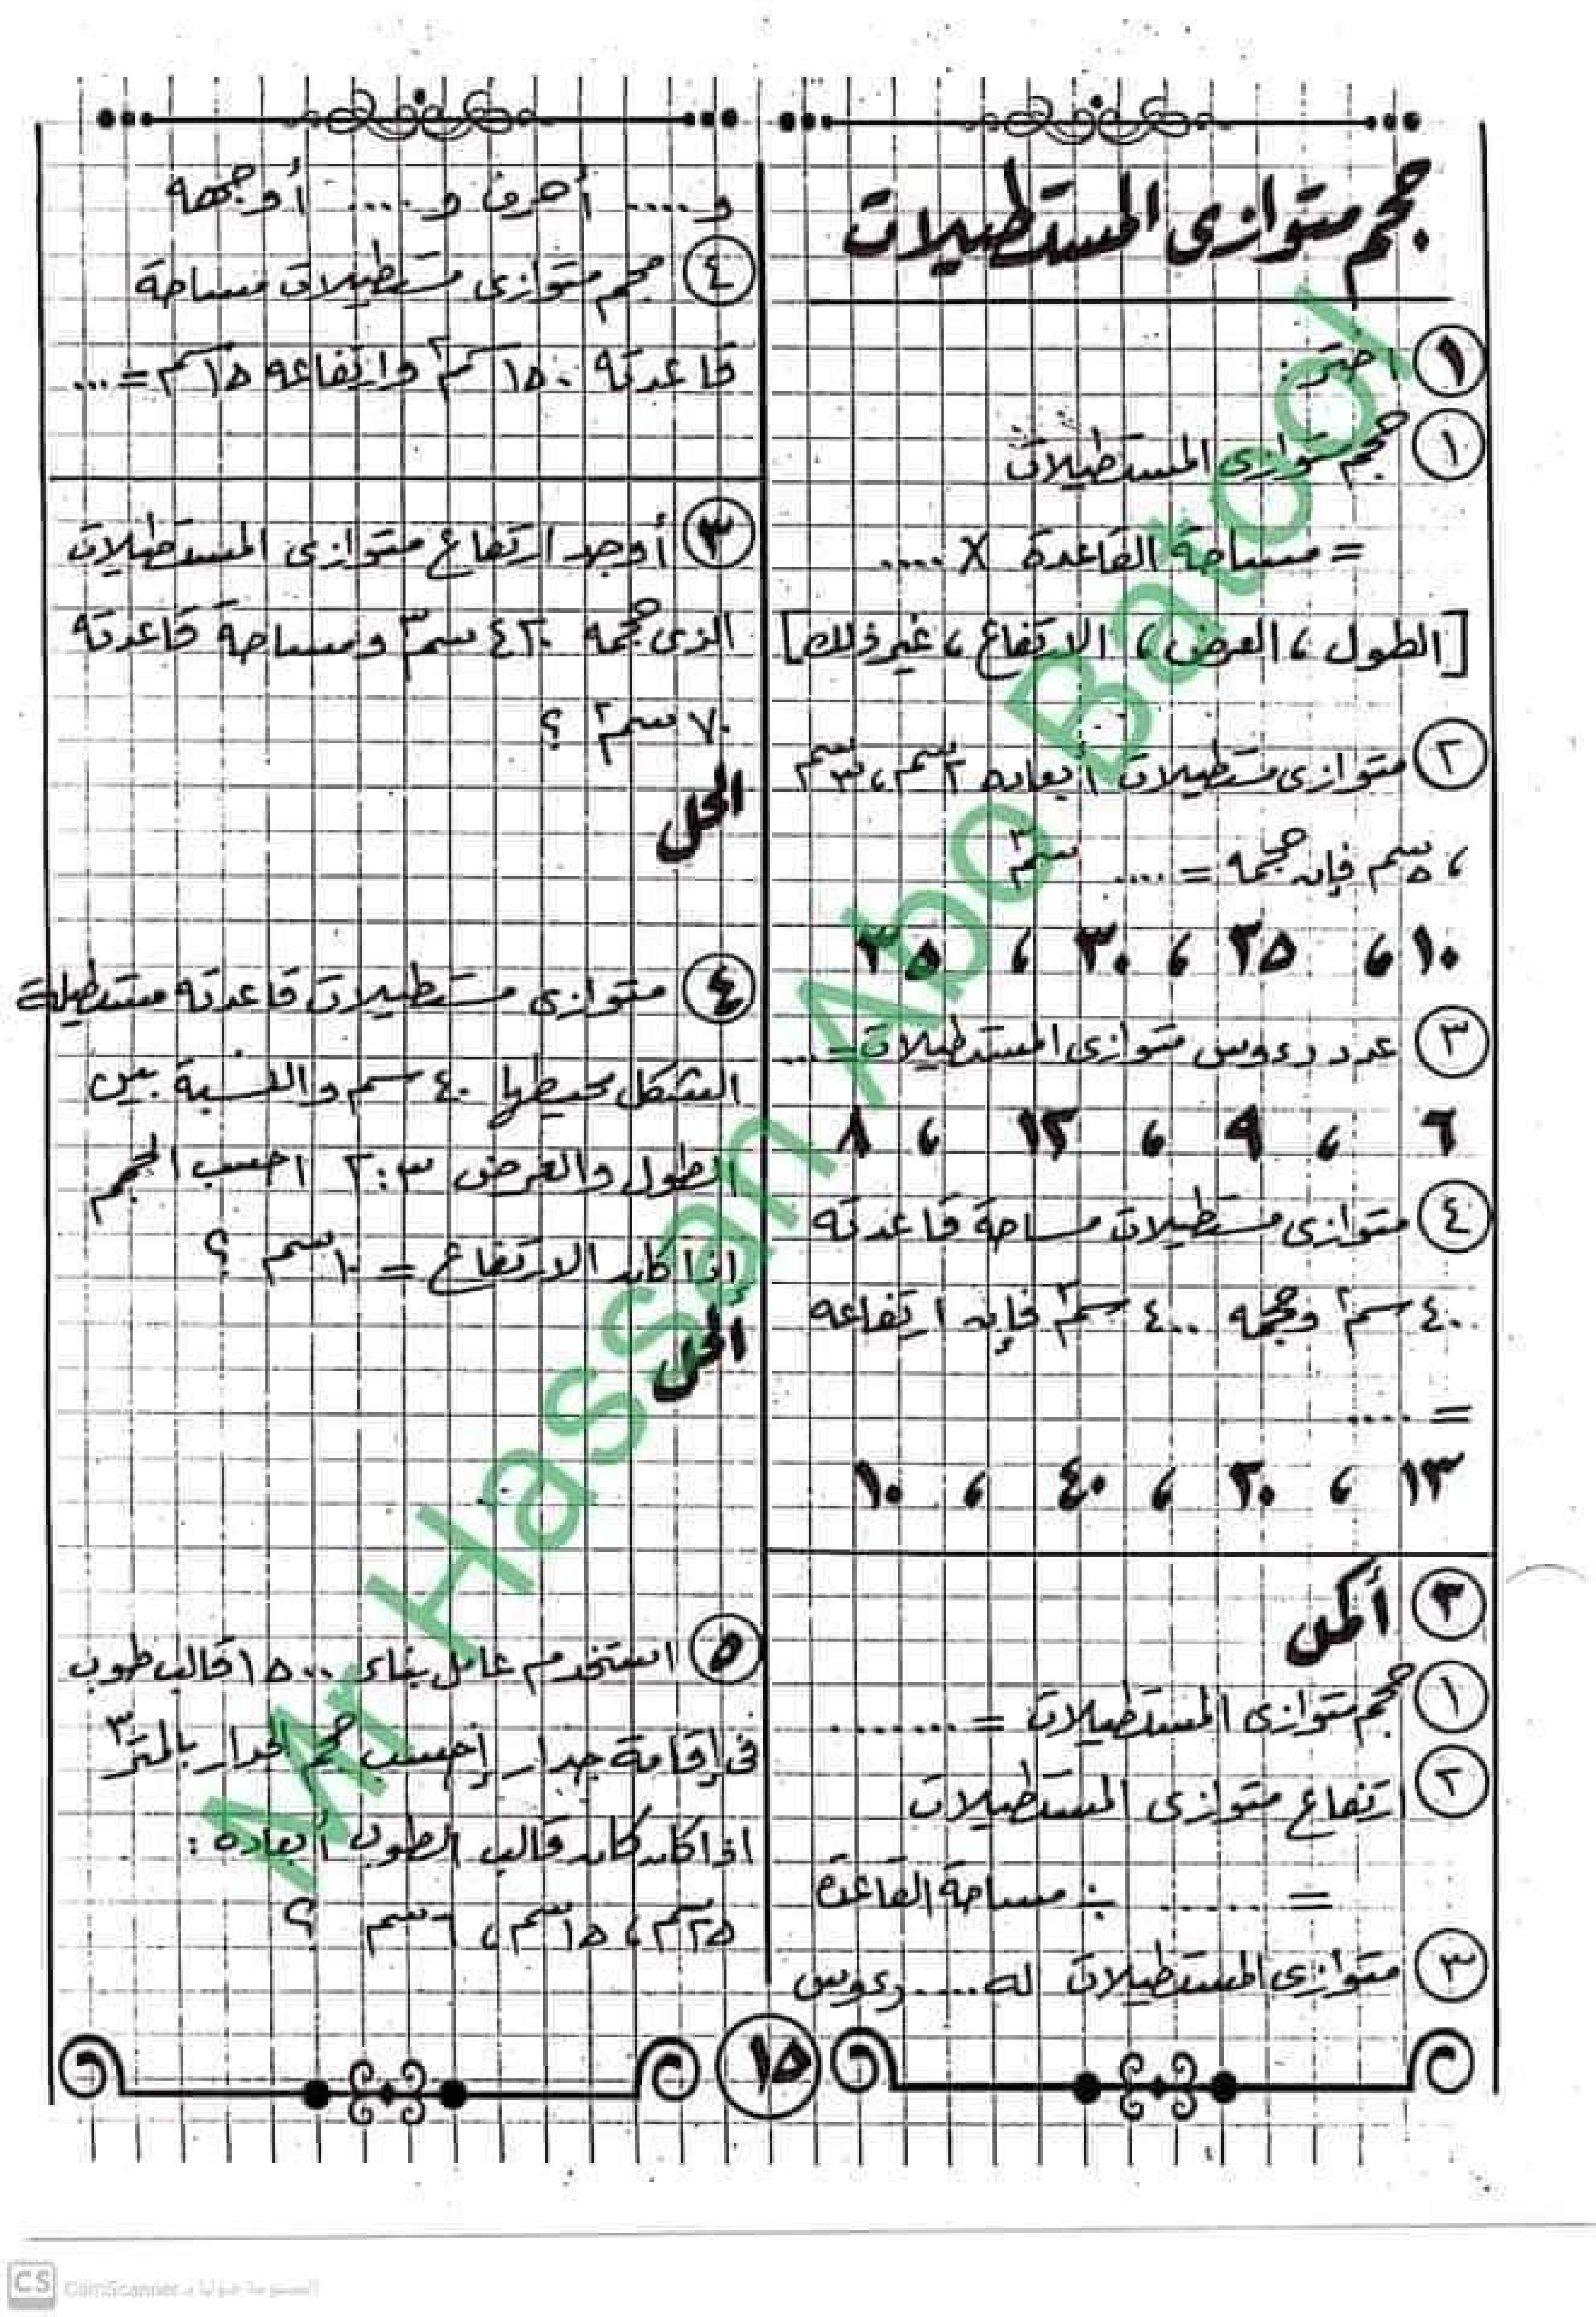 حجم متوازى المستطيلات
١ اختر :
١ حجم متوازى المستطيلات
= مساحة القاعدة × .....
[الطول ، العرض ، الارتفاع ، غير ذلك]
٢ متوازى مستطيلات أبعاده ٢سم ، ٣سم
، ٥سم فإن حجمه = .... سم٣
١٠ ، ٢٥ ، ٣٠ ، ٣٥
٣ عدد رءوس متوازى المستطيلات = ...
٦ ، ٩ ، ١٢ ، ٨
٤ متوازى مستطيلات مساحة قاعدته
٤٠٠ سم٢ وحجمه ٤٠٠٠ سم٣ فإن ارتفاعه
= ....
١٣ ، ٢٠ ، ٤٠ ، ١٠
٢ أكمل
١ حجم متوازى المستطيلات = ........
٢ ارتفاع متوازى المستطيلات
= ...... ÷ مساحة القاعدة
٣ متوازى المستطيلات له .... رءوس
و .... أحرف و .... أوجهه
٤ حجم متوازى مستطيلات مساحة
قاعدته ١٥٠ سم٢ وارتفاعه ١٥سم = ...
٣ أوجد ارتفاع متوازى المستطيلات
الذى حجمه ٤٢٠ سم٣ ومساحة قاعدته
٧٠ سم٢ ؟
الحل
٤ متوازى مستطيلات قاعدته مستطيلة
الشكل محيطها ٤٠ سم والنسبة بين
الطول والعرض ٣ : ٢ احسب الحجم
إذا كان الارتفاع = ١٠سم ؟
الحل
٥ استخدم عامل بناء ١٥٠٠ قالب طوب
فى إقامة جدار إحسب حجم الجدار بالمتر٣
اذا كان كان قالب الطوب أبعاده :
٢٥سم ، ١٥سم ، ٦سم ؟
١٥
Mr Hassan Abo Batool
CS CamScanner